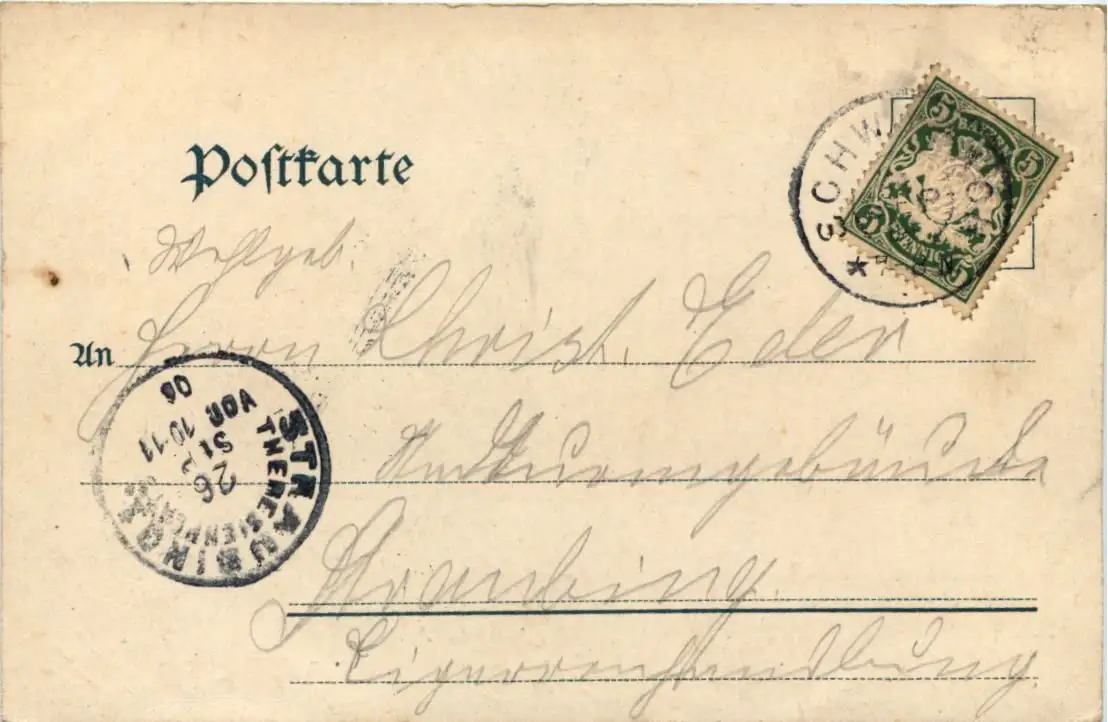 Postkarte
5 5
BAYERN
PFENNIG
5 5
SCHW
Wohlgeb.
An Herrn Christ. Eder
Straubing.
Cigarrenhandlung
STRAUBING
THERESIENPLATZ
26
VOR 10-11
06